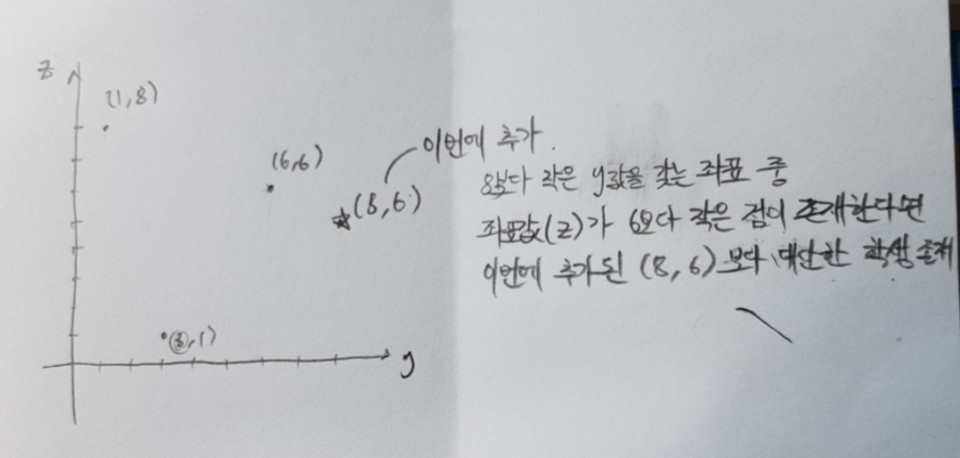 z
(1,8)
(6,6)
이번에 추가.
(8,6)
8보다 작은 y값을 갖는 좌표 중
좌표값(z)가 6보다 작은 점이 존재한다면
이번에 추가된 (8,6)보다 대단한 학생 존재
(3,1)
y